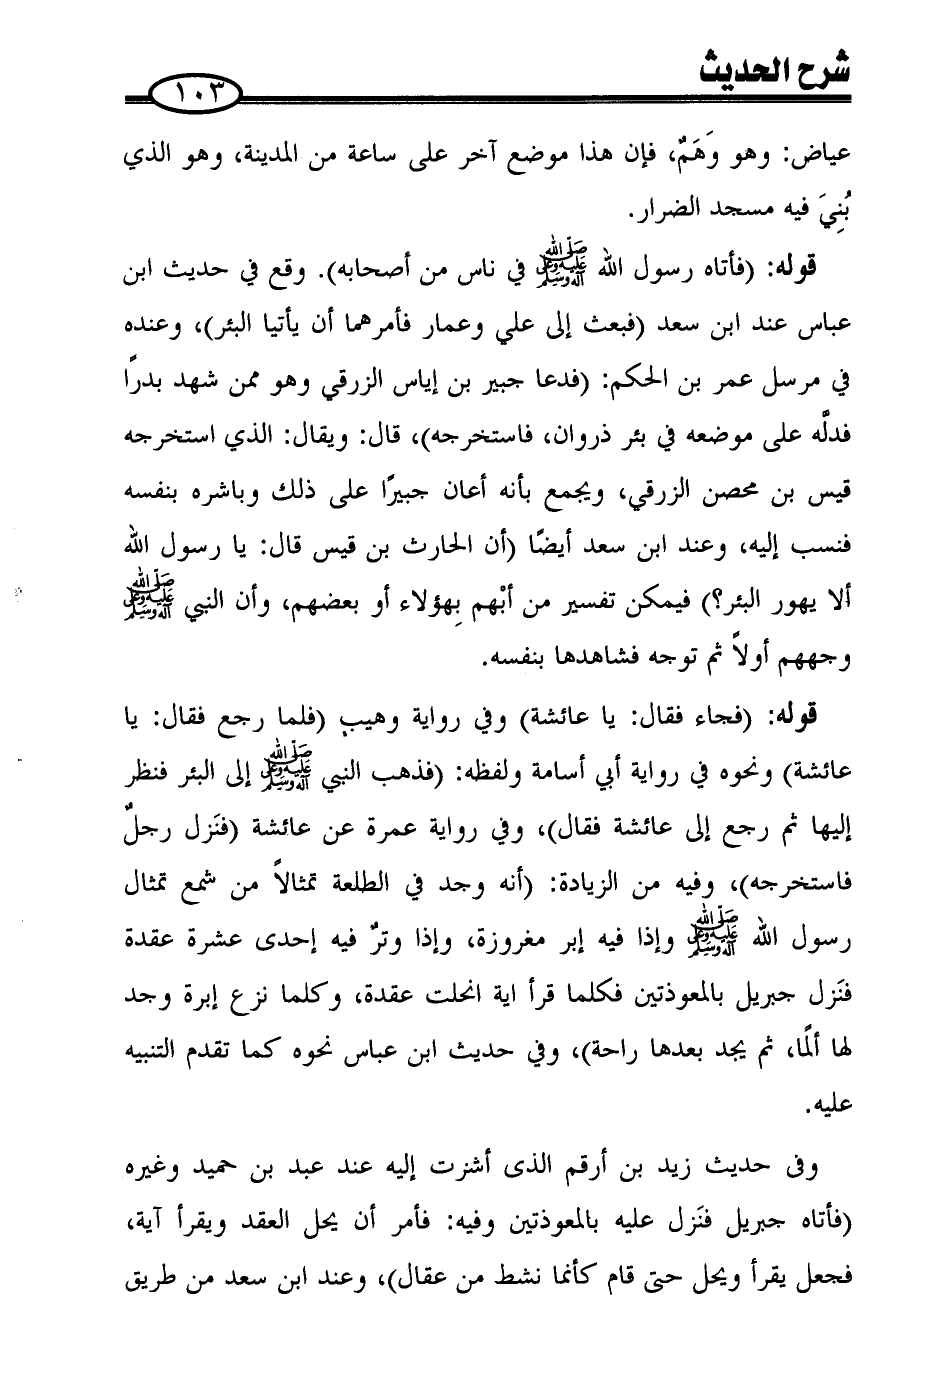 شرح الحديث
١٠٣
عياض: وهو وَهَمٌ، فإن هذا موضع آخر على ساعة من المدينة، وهو الذي
بُنِيَ فيه مسجد الضرار.
قوله: (فأتاه رسول الله ﷺ في ناس من أصحابه). وقع في حديث ابن
عباس عند ابن سعد (فبعث إلى علي وعمار فأمرهما أن يأتيا البئر)، وعنده
في مرسل عمر بن الحكم: (فدعا جبير بن إياس الزرقي وهو ممن شهد بدرًا
فدلَّه على موضعه في بئر ذروان، فاستخرجه)، قال: ويقال: الذي استخرجه
قيس بن محصن الزرقي، ويجمع بأنه أعان جبيرًا على ذلك وباشره بنفسه
فنسب إليه، وعند ابن سعد أيضًا (أن الحارث بن قيس قال: يا رسول الله
ألا يهور البئر؟) فيمكن تفسير من أبْهم بِهؤلاء أو بعضهم، وأن النبي ﷺ
وجههم أولاً ثم توجه فشاهدها بنفسه.
قوله: (فجاء فقال: يا عائشة) وفي رواية وهيب (فلما رجع فقال: يا
عائشة) ونحوه في رواية أبي أسامة ولفظه: (فذهب النبي ﷺ إلى البئر فنظر
إليها ثم رجع إلى عائشة فقال)، وفي رواية عمرة عن عائشة (فنَزل رجلٌ
فاستخرجه)، وفيه من الزيادة: (أنه وجد في الطلعة تمثالاً من شمع تمثال
رسول الله ﷺ وإذا فيه إبر مغروزة، وإذا وترٌ فيه إحدى عشرة عقدة
فنَزل جبريل بالمعوذتين فكلما قرأ اية انحلت عقدة، وكلما نزع إبرة وجد
لها ألمًا، ثم يجد بعدها راحة)، وفي حديث ابن عباس نحوه كما تقدم التنبيه
عليه.
وفى حديث زيد بن أرقم الذى أشرت إليه عند عبد بن حميد وغيره
(فأتاه جبريل فنَزل عليه بالمعوذتين وفيه: فأمر أن يحل العقد ويقرأ آية،
فجعل يقرأ ويحل حتى قام كأنما نشط من عقال)، وعند ابن سعد من طريق